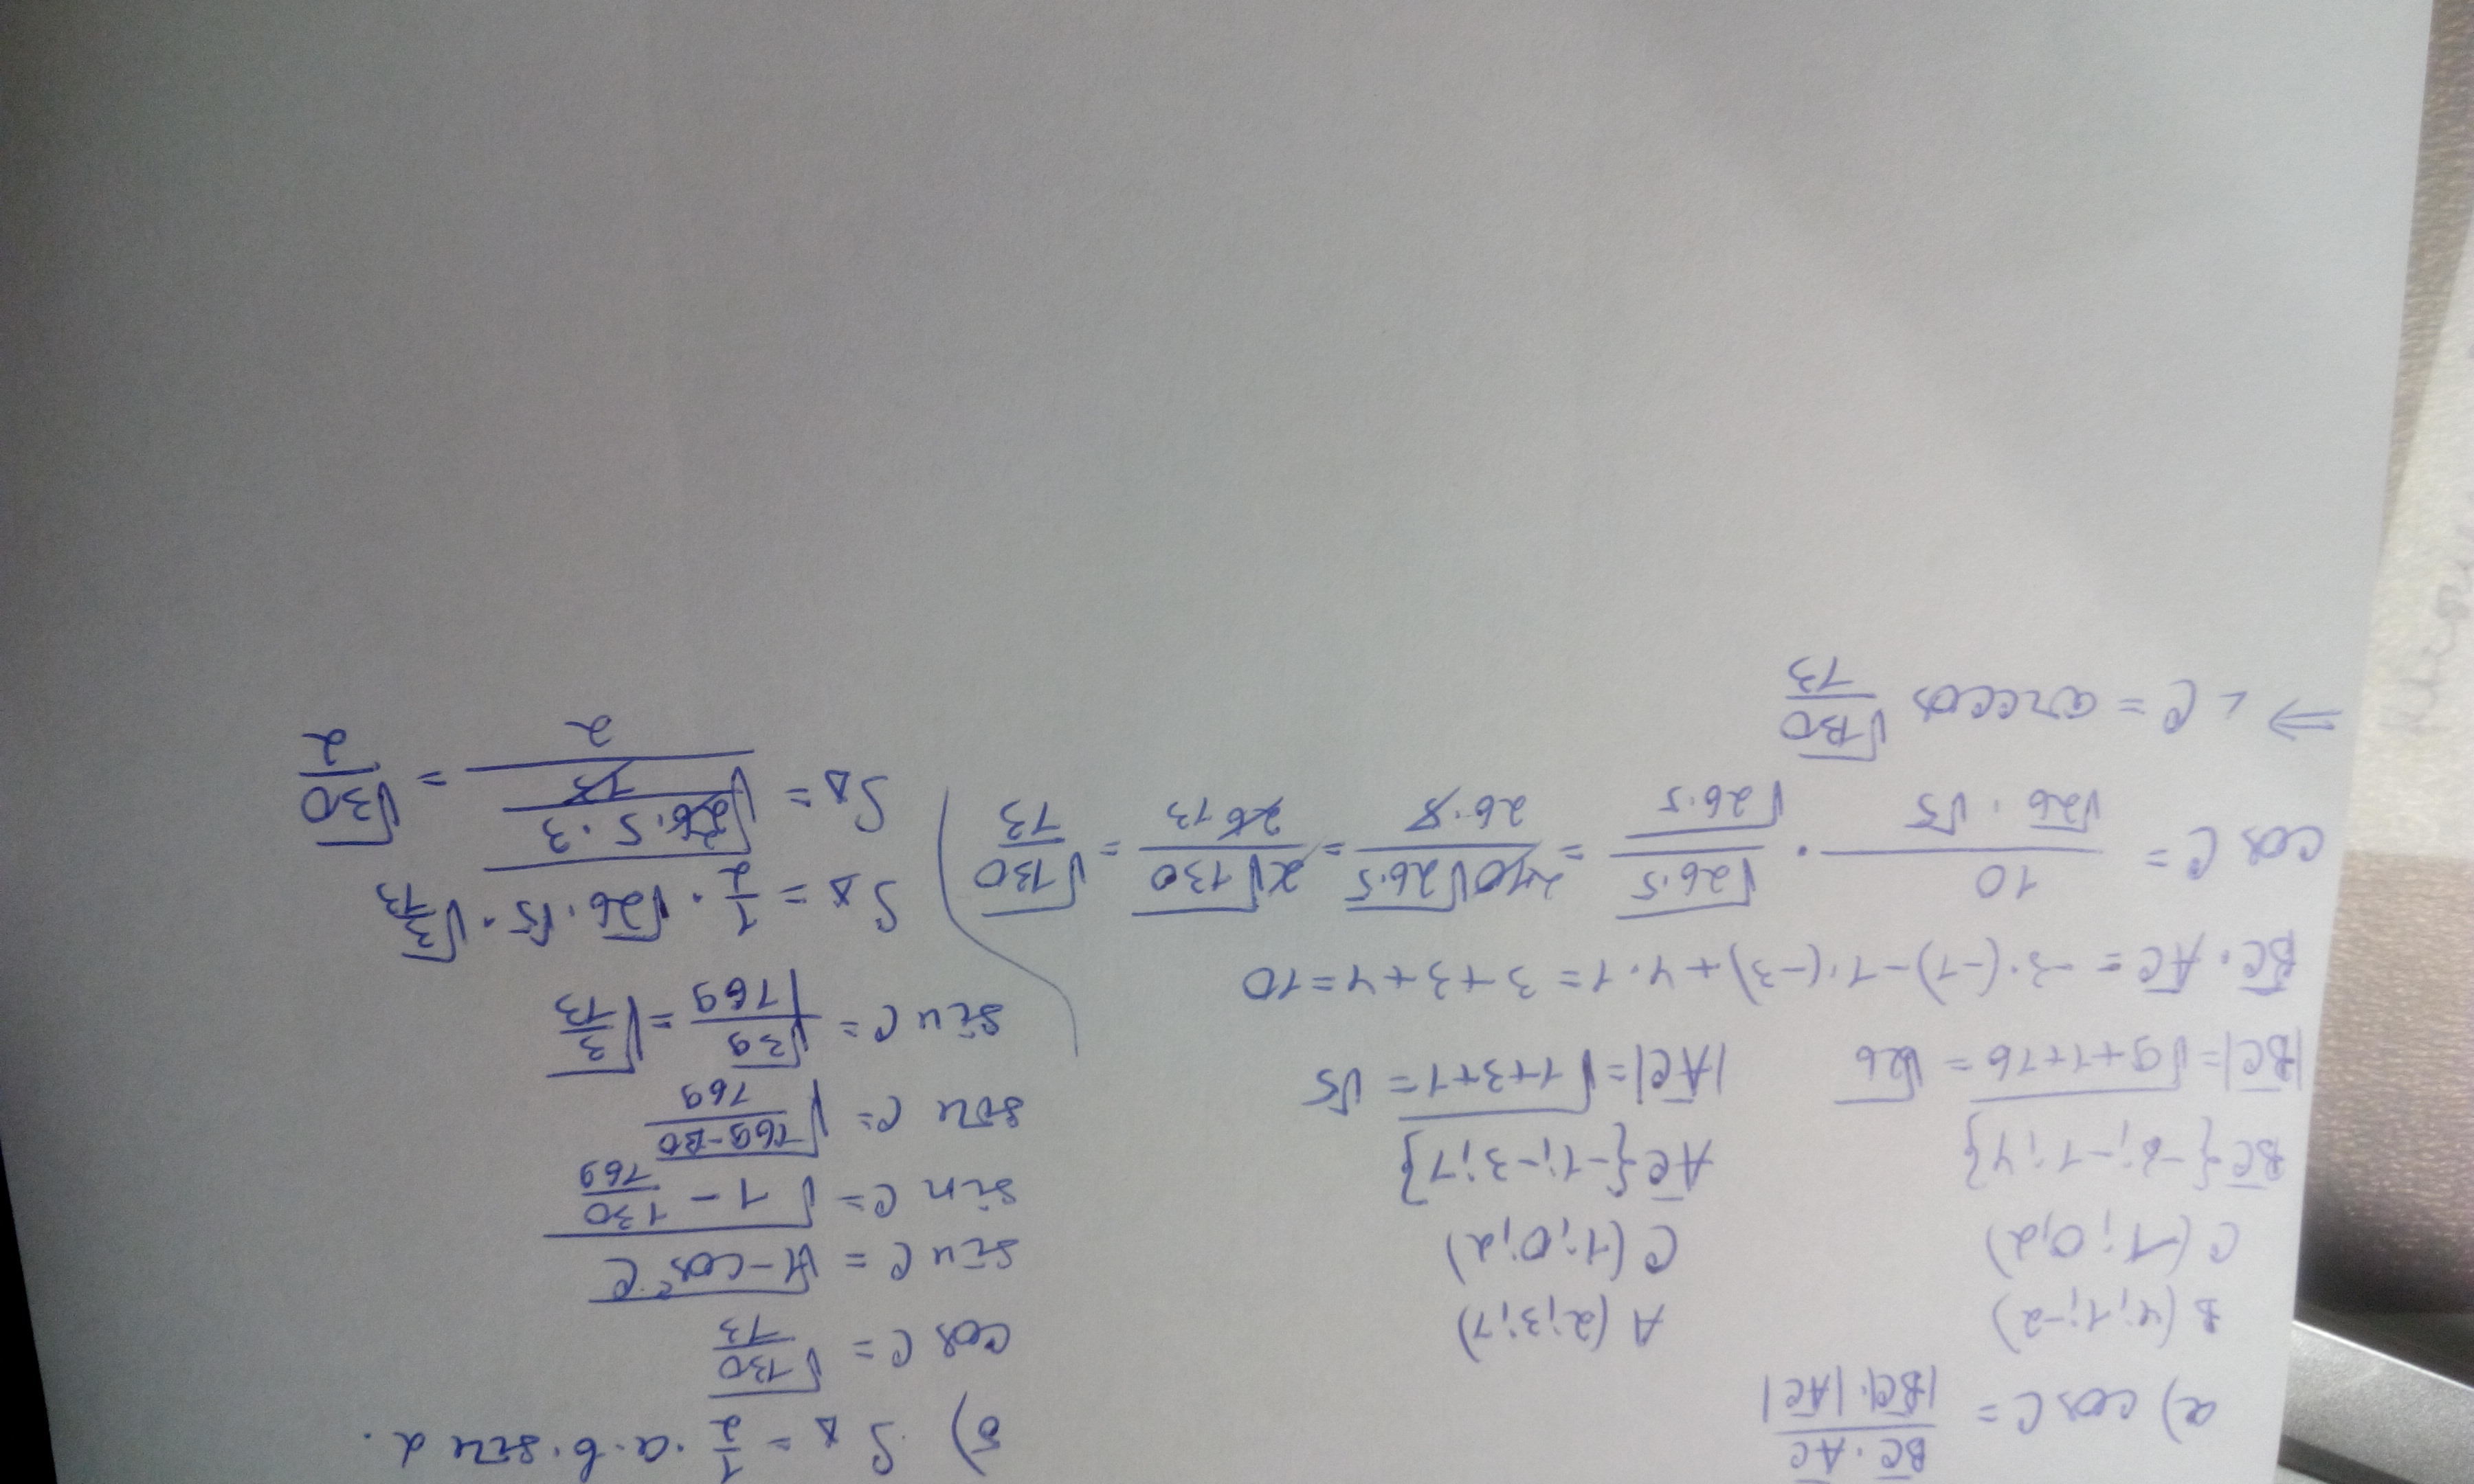 а) cos C = BC·AC / |BC|·|AC|
B (4; 1; -2)
C (1; 0; 2)
BC{-3; -1; 4}
|BC| = √9+1+16 = √26
A (2; 3; 1)
C (1; 0; 2)
AC{-1; -3; 1}
|AC| = √1+3+1 = √5
BC·AC = -3·(-1)-1·(-3)+4·1 = 3+3+4 = 10
cos C = 10 / √26·√5 · √26·5 / √26·5 = 10√26·5 / 26·5 = 2√130 / 26 13 = √130 / 13
⇒ ∠C = arccos √130 / 13
б) S△ = 1/2 · a·b·sin α.
cos C = √130 / 13
sin C = √1-cos² C
sin C = √1 - 130/169
sin C = √169-130 / 169
sin C = √39 / √169 = √3/13
S△ = 1/2 · √26·√5·√3/13
S△ = √26·5·3 / 13 / 2 = √30 / 2